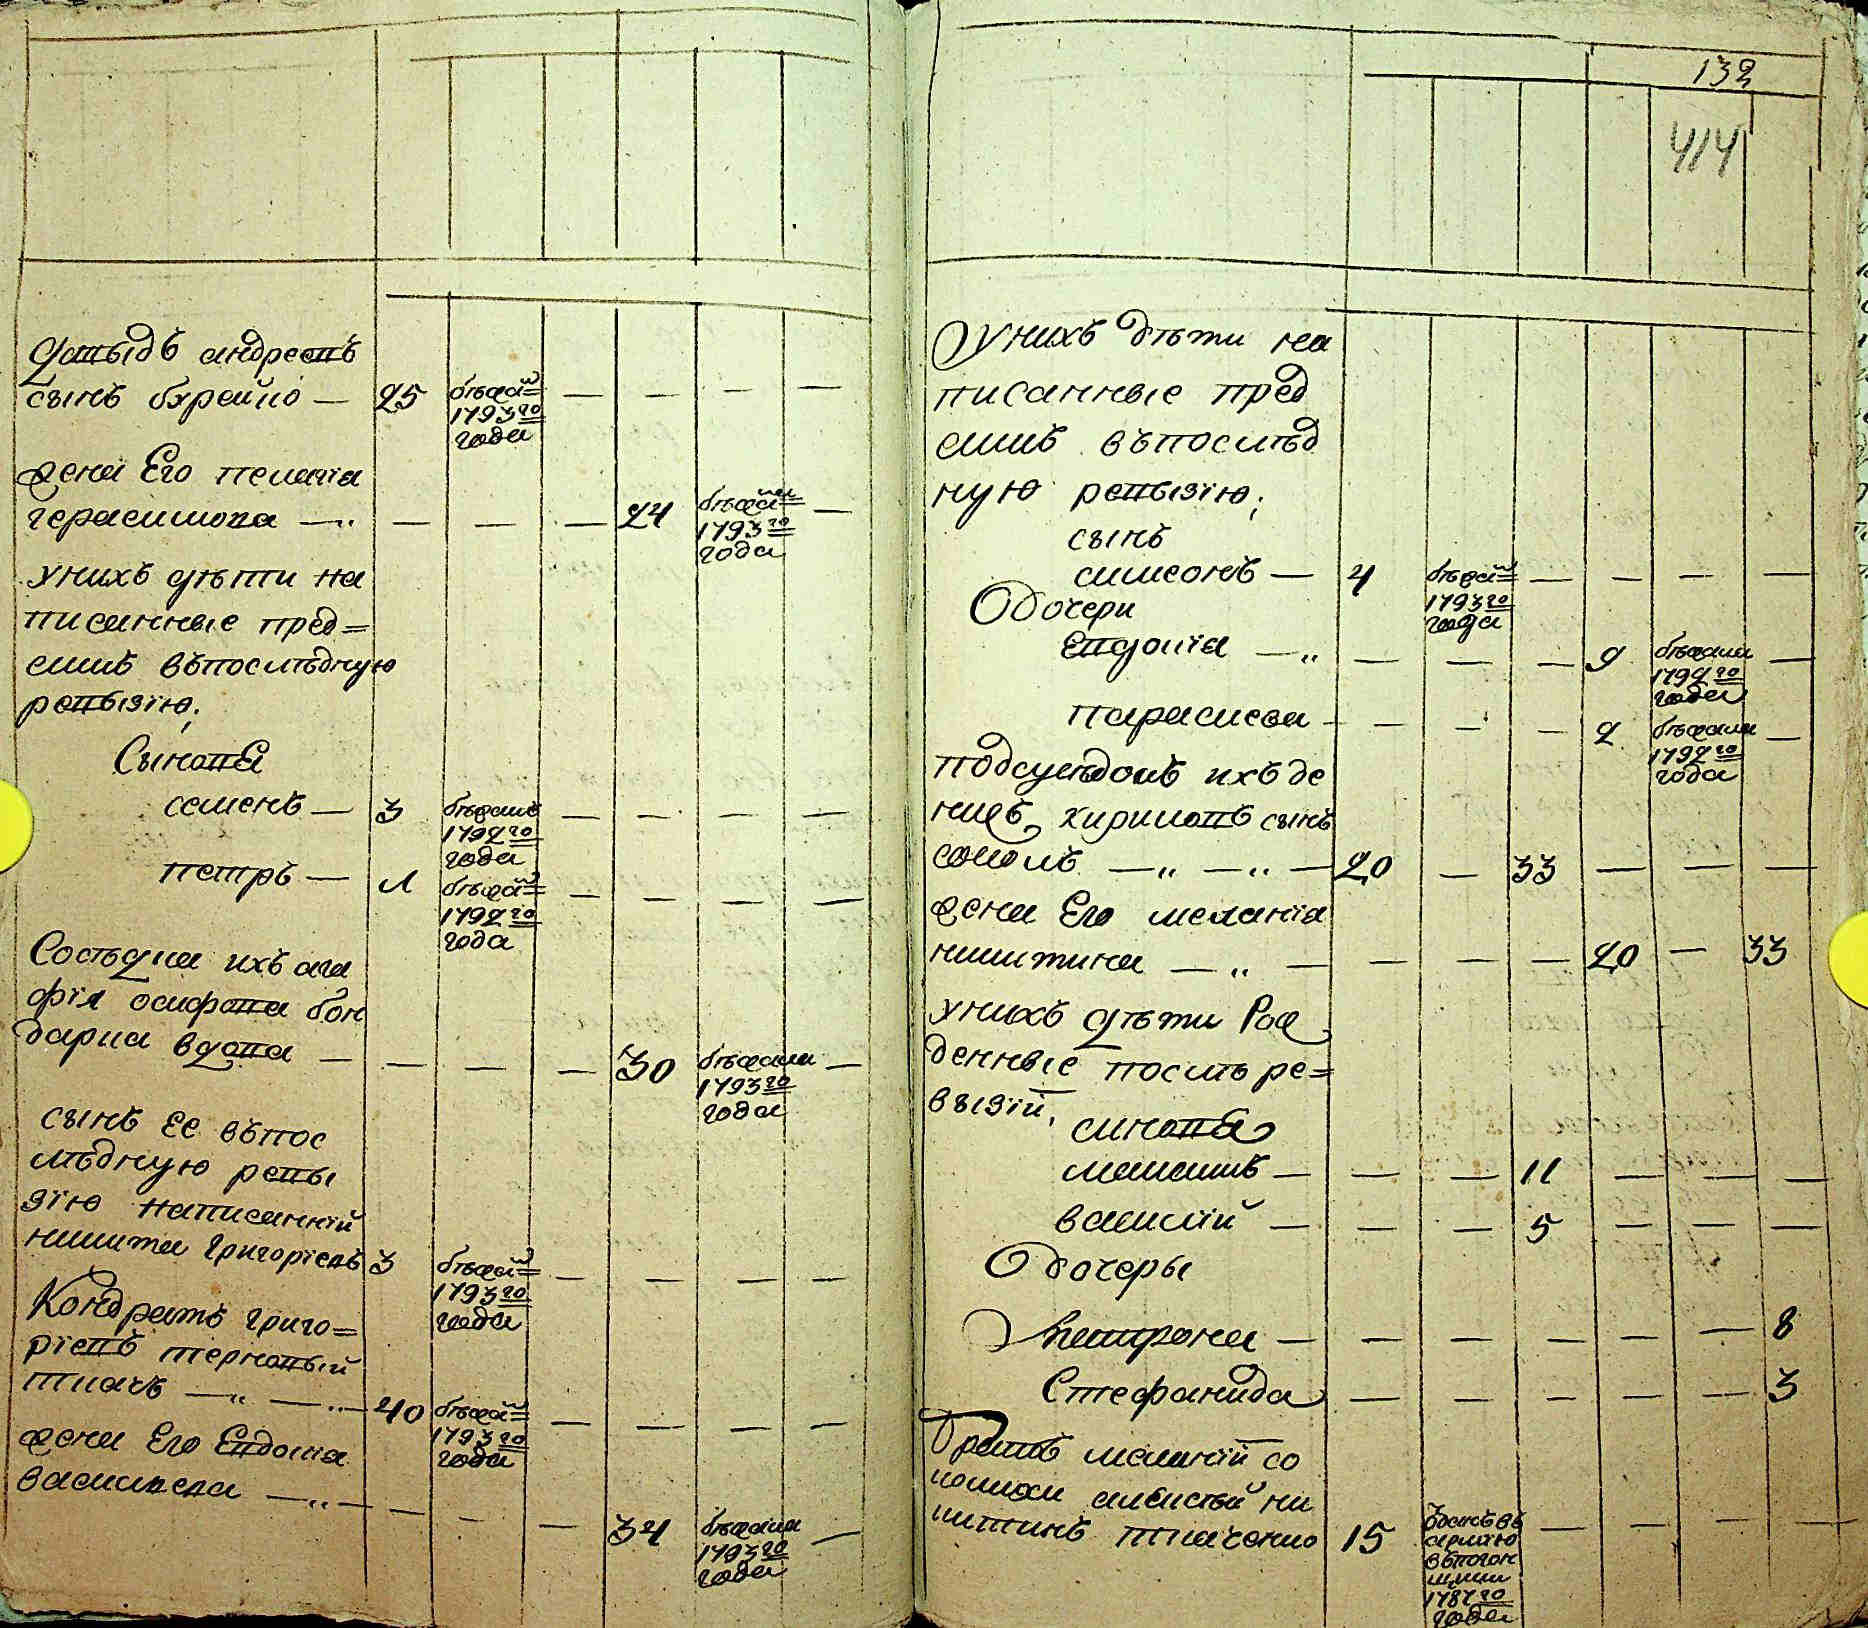 Давыдъ андреевъ
сынъ бурейко — 25 бѣжалъ — — — —
1793го
года
жена Его пелагія
герасимова — „ — — — 24 бѣжала —
1793го
года
у нихъ дѣти на
писанные пред=
симъ въпослѣдную
ревизію;
Сыновья
семенъ — 3 бѣжалъ — — — —
1792го
года
петръ — 1 бѣжалъ — — — —
1792го
года
Сосѣдка ихъ ага
фія осифова бон
дарка вдова — — — — 30 бѣжала —
1793го
года
сынъ ее въпос
лѣдную ревы
зію написанній
никита григоріевъ 3 бѣжалъ — — — —
1793го
года
Кондратъ григо=
ріевъ терновый
ткачъ — „ — „ — 40 бѣжалъ — — — —
1793го
года
жена Его Евдокія
василева — „ — — — — 34 бѣжала —
1793го
года
132
414
У нихъ дѣти на
писанные пред
симъ въпослѣд
ную ревызію;
сынъ
симеонъ — 4 бѣжалъ — — — —
1793го
года
дочери
Евдокія — „ — — — 9 бѣжала —
1792го
года
параскева — — — — 2 бѣжала —
1792го
года
подсуседокъ ихъ де
нисъ кириловъ сынъ
соколъ — „ — „ — 20 — 33 — — —
жена Его меланія
никитина — „ — — — — 20 — 33
у нихъ дѣти Рож
денные послѣ ре=
вызій;
синовья
максимъ — — — 11 — — —
василій — — — 5 — — —
дочеры
матрона — — — — — — 8
Стефанида — — — — — 3
братъ
алексѣй ни
китинъ ткаченко 15 — — — —
1787го
года